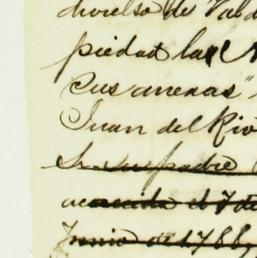 de Vald
piedad las
Cus anexas"
Juan del Rio
Sr. su padre
acaecida el 7 de
Junio de 1788,